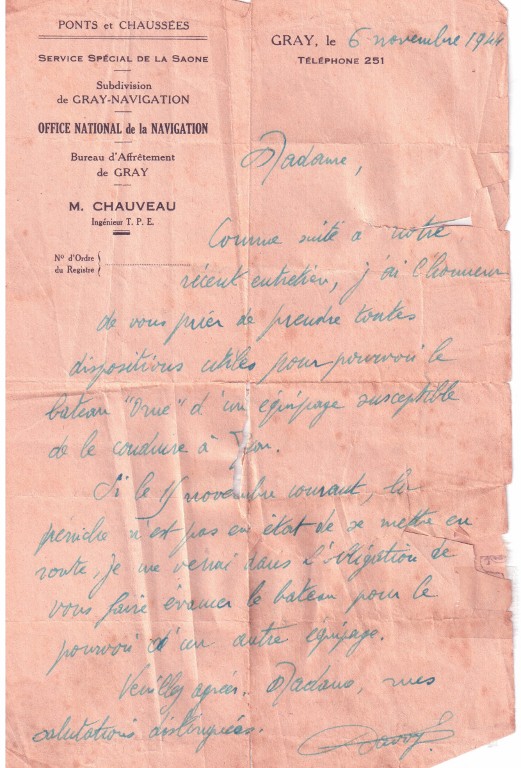 PONTS et CHAUSSÉES
SERVICE SPÉCIAL DE LA SAONE
Subdivision
de GRAY-NAVIGATION
OFFICE NATIONAL de la NAVIGATION
Bureau d'Affrêtement
de GRAY
M. CHAUVEAU
Ingénieur T. P. E.
Nº d'Ordre
du Registre
GRAY, le 6 novembre 1944
TÉLÉPHONE 251
Madame,
Comme suite à notre
récent entretien, j'ai l'honneur
de vous prier de prendre toutes
dispositions utiles pour pourvoir le
bateau "Orne" d'un équipage susceptible
de le conduire à Lyon.
Si le novembre courant, la
péniche n'est pas en état de se mettre en
route, je me verrai dans l'obligation de
vous faire évacuer le bateau pour le
pourvoir d'un autre équipage.
Veuillez agréer, Madame, mes
salutations distinguées.